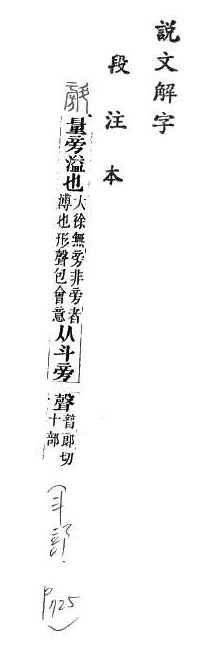 說文解字
段注本
量旁溢也大徐無旁非旁者溥也形聲包會意从斗旁聲普郎切十部(斗部 P725)